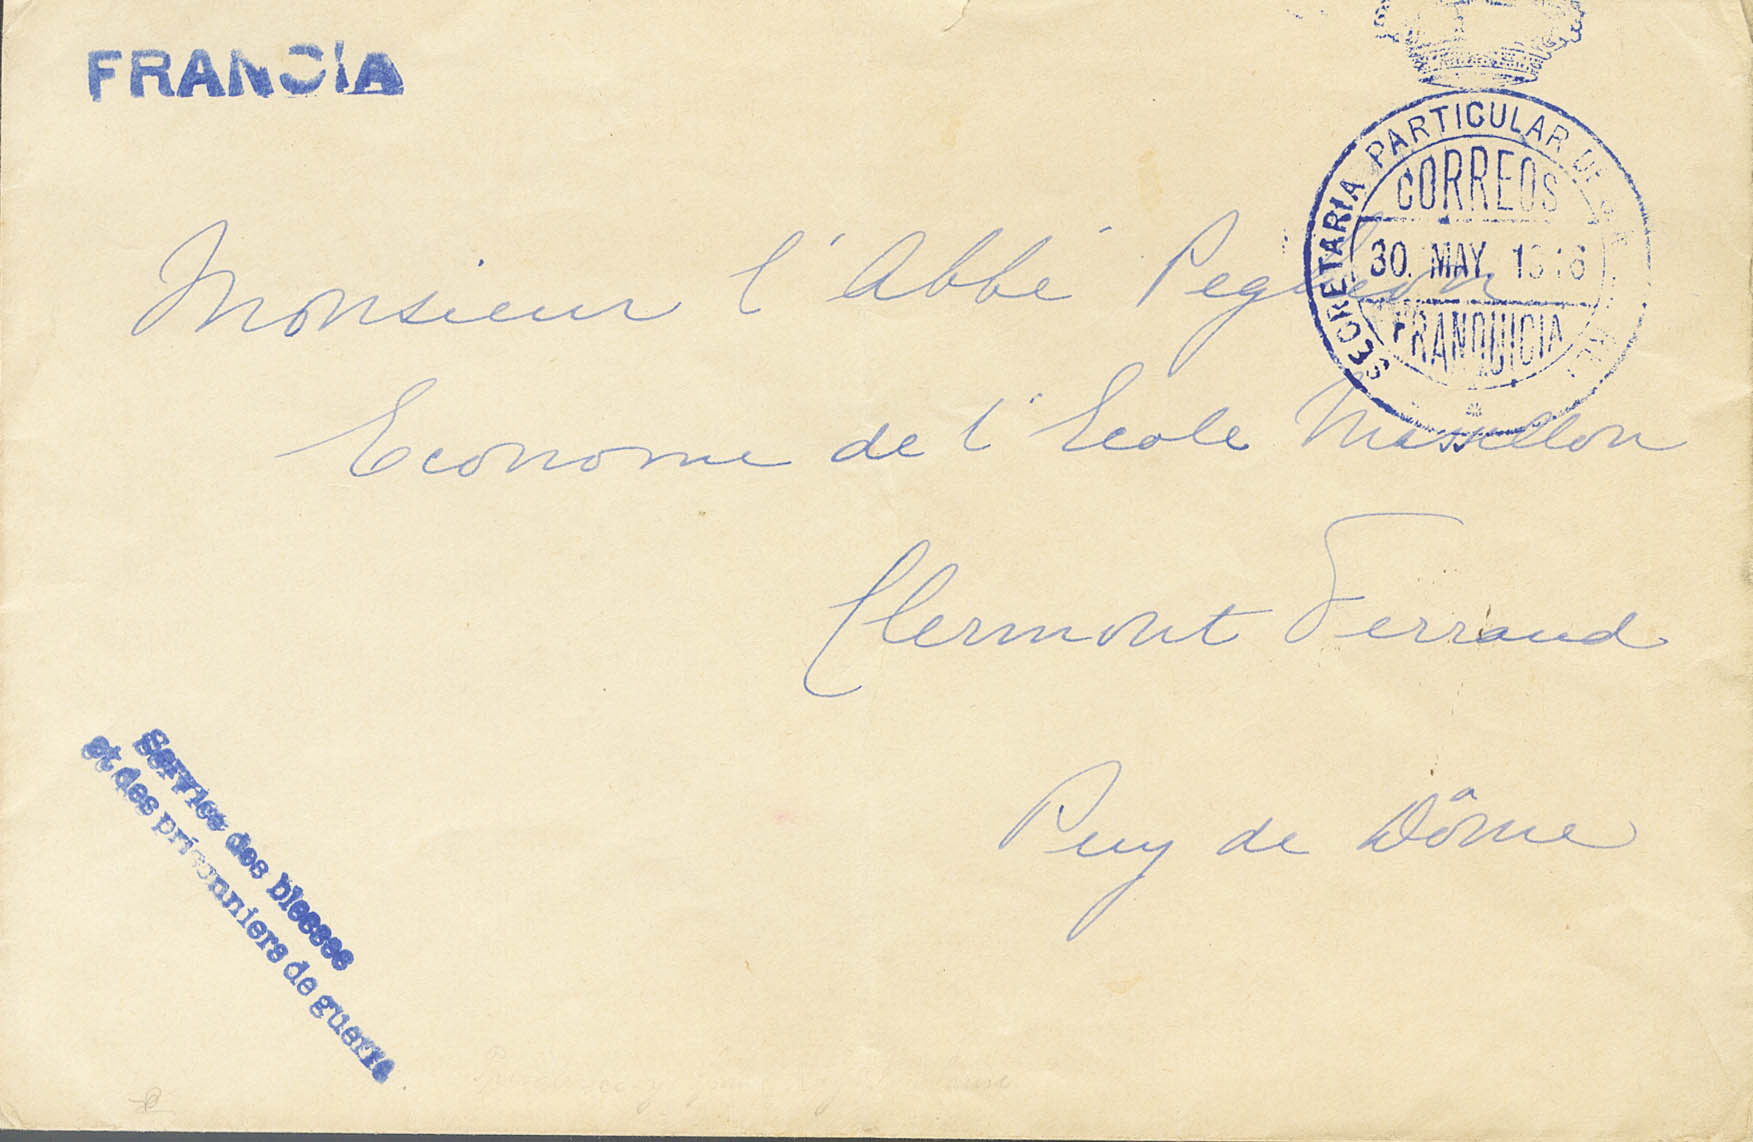 FRANCIA
SECRETARIA PARTICULAR DE
CORREOS
30. MAY. 1916
FRANQUICIA
Monsieur l'Abbé
Econome de l'Ecole Massillon
Clermont Ferrand
Puy de Dôme
Service des blesses
et des prisonniers de guerre